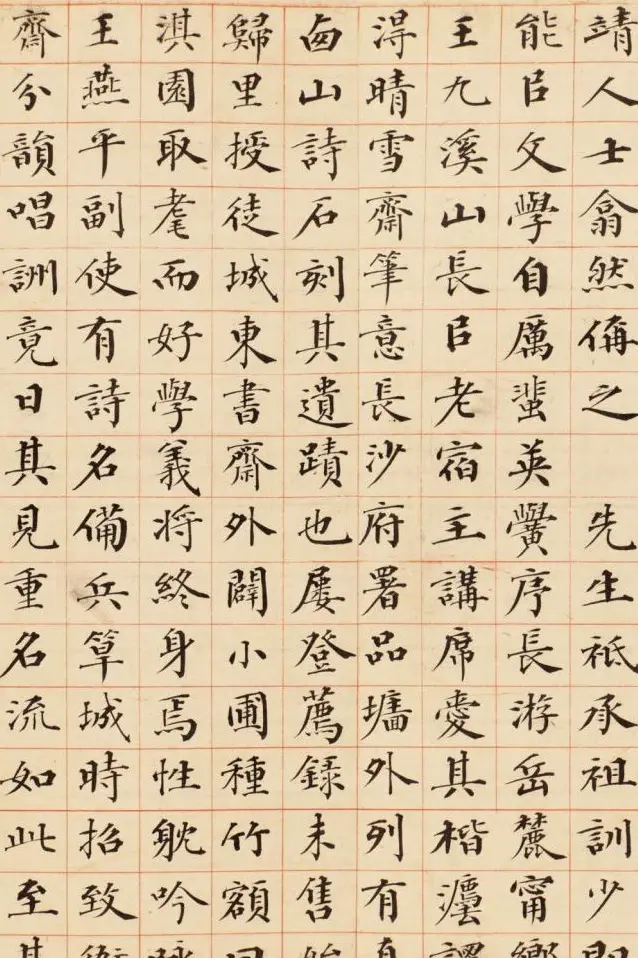 靖人士翕然偁之 先生祇承祖訓少即
能㠯文學自厲蜚英黌序長游岳麓甯鄉
王九溪山長㠯老宿主講席愛其楷灋謂
淂晴雪齋筆意長沙府署品墻外列有真
卥山詩石刻其遺蹟也屡登薦録未售始
歸里授徒城東書齋外闢小圃種竹額曰
淇園取耄而好學義将終身焉性躭吟咏
王燕平副使有詩名備兵筸城時招致衙
齋分韻唱詶竟日其見重名流如此至其